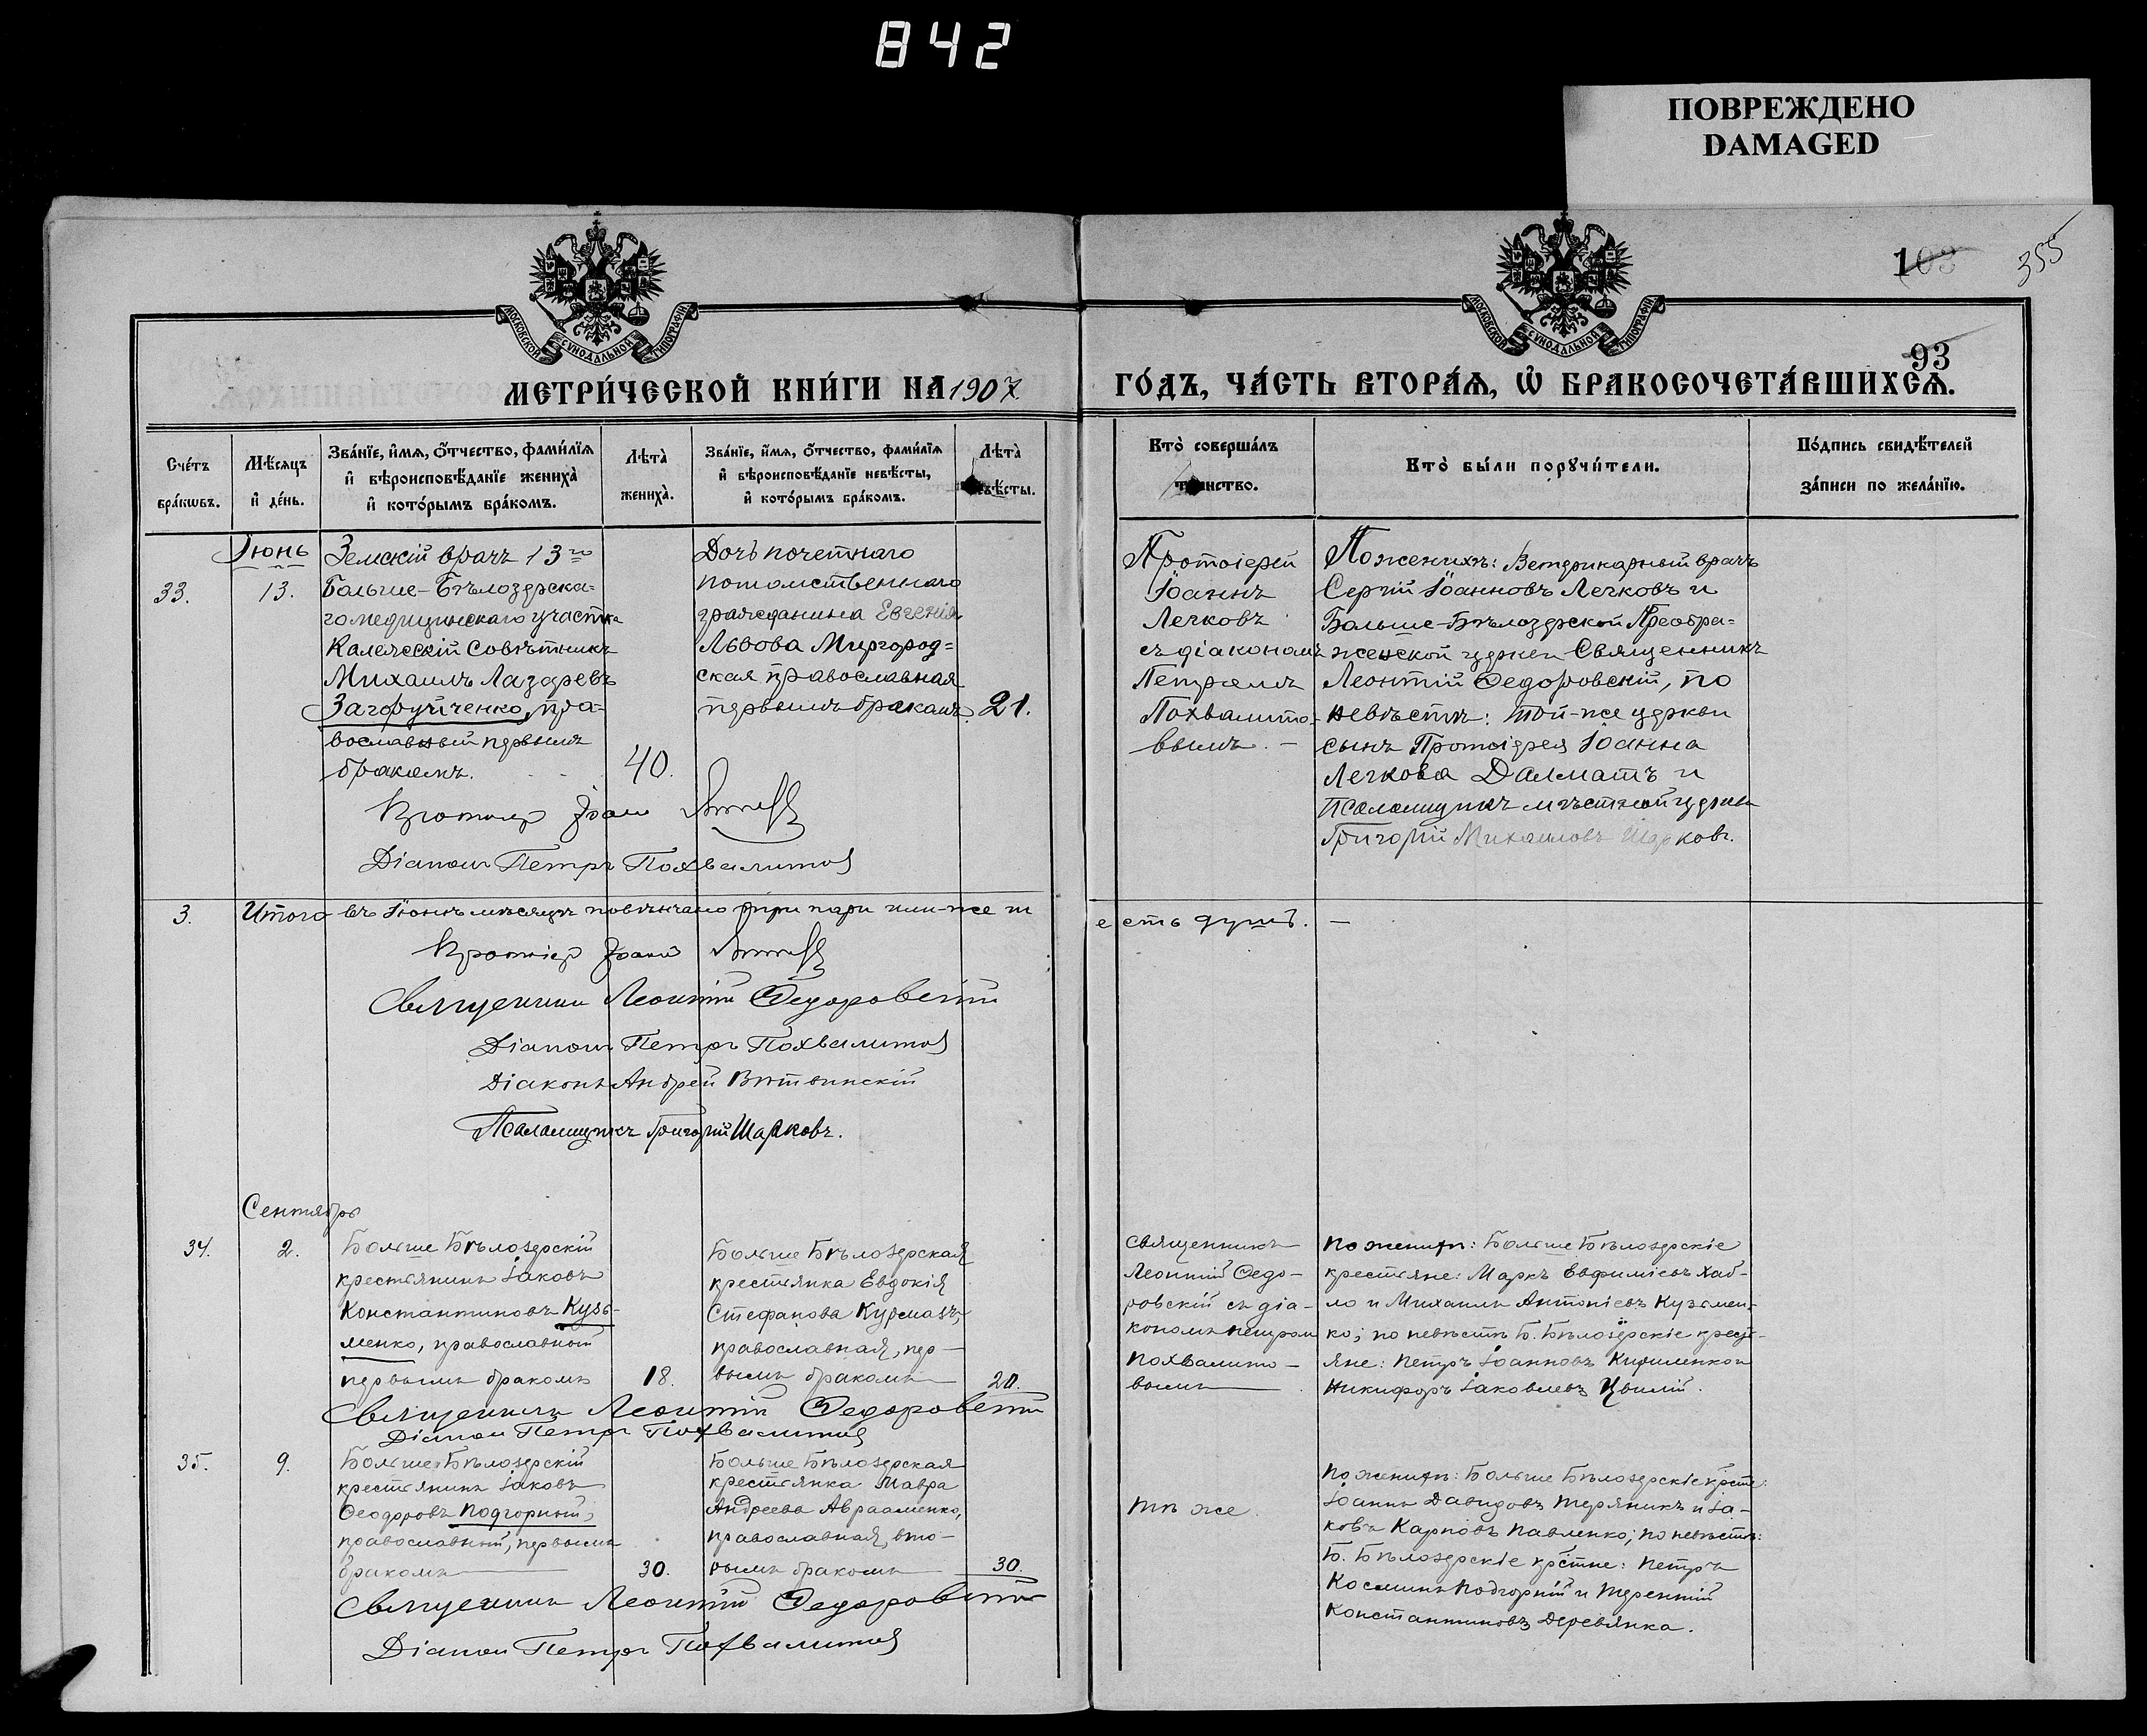 842
ПОВРЕЖДЕНО
DAMAGED
103
355
93
МОСКОВСКОЙ СѴНОДАЛЬНОЙ ТИПОГРАФІИ
МОСКОВСКОЙ СѴНОДАЛЬНОЙ ТИПОГРАФІИ
МЕТРИ́ЧЕСКОЙ КНИ́ГИ НА 1907
ГО́ДЪ, ЧА́СТЬ ВТОРА́Ѧ, Ѡ҆ БРАКОСОЧЕТА́ВШИХСѦ.
Сче́тъ бра́кѡвъ.
Мѣ́сѧцъ и҆ де́нь.
Зва́нїе, и҆́мѧ, ѻ҆́тчество, фами́лїѧ
и҆ вѣроисповѣ́данїе жениха̀
и҆ кото́рымъ бра́комъ.
Лѣта̀ жениха̀.
Зва́нїе, и҆́мѧ, ѻ҆́тчество, фами́лїѧ
и҆ вѣроисповѣ́данїе невѣ́сты,
и҆ кото́рымъ бра́комъ.
Лѣта̀ невѣ́сты.
Кто̀ соверша́лъ таинство.
Кто̀ бы́ли порꙋчи́тели.
По́дпись свидѣ́телей
за́писи по жела́нїю.
33.
Іюнь
13.
Земскій врачъ 13го
Больше-Бѣлозерска-
го медицинскаго участка
Коллежскій Совѣтникъ
Михаилъ Лазаревъ
Загоруйченко, пра-
вославный первымъ
бракомъ.
40.
Дочь почетнаго
потомственнаго
гражданина Евгенія
Львова Миргород=
ская православная
первымъ бракомъ.
21.
Протоіерей
Іоаннъ
Легковъ
съ діакономъ
Петромъ
Похвалито-
вымъ. —
По женихѣ: Ветеринарный врачъ
Сергій Іоанновъ Легковъ и
Больше-Бѣлозерской Преобра=
женской церкви Священникъ
Леонтій Федоровскій, по
невѣстѣ: той-же церкви
сынъ Протоіерея Іоанна
Легкова Далматъ и
Псаломщикъ мѣстной церкви
Григорій Михаиловъ Шарковъ.
Протоіер Іоанн
Діаконъ Петръ Похвалитов
3.
Итого въ Іюнѣ мѣсяцѣ повѣнчано три пари или-же ш
есть душъ. —
Протоіер Іоанн
Священник Леонтій Федоровскій
Діаконъ Петръ Похвалитов
Діаконъ Андрей Витвинскій
Псаломщикъ Григорій Шарковъ.
Сентябрь
34.
2.
Больше Бѣлозерскій
крестьянинъ Іаковъ
Константиновъ Кузь-
менко, православный
первымъ бракомъ
18.
Больше Бѣлозерская
крестьянка Евдокія
Стефанова Курмазъ,
православная, пер—
вымъ бракомъ
20.
Священникъ
Леонтій Федо-
ровскій съ діа-
кономъ Петром
Похвалито—
вымъ
По женихѣ: Больше Бѣлозерскіе
крестьяне: Маркъ Евфиміевъ Хаб-
ло и Михаилъ Антоніевъ Кузьмен-
ко; по невѣстѣ Б. Бѣлозерскіе кресть-
яне: Петръ Іоанновъ Кириленко и
Никифоръ Іаковлевъ Цвилій.
Священникъ Леонтій Федоровскій
Діакон Петръ Похвалитов
35.
9.
Больше Бѣлозерскій
крестьянинъ Іаковъ
Феодоровъ Подгорный,
православный, первымъ
бракомъ
30.
Больше Бѣлозерская
крестьянка Мавра
Андреева Авраменко,
православная, вто—
рымъ бракомъ
30.
Тѣ же.
По женихѣ: Больше Бѣлозерскіе крсте:
Іоаннъ Давидовъ Теряникъ и Іа-
ковъ Карповъ Павленко; по невѣстѣ:
Б. Бѣлозерскіе крстне: Петръ
Космин Подгорній и Терентій
Константиновъ Деревянка.
Священник Леонтій Федоровскій
Діакон Петръ Похвалитов